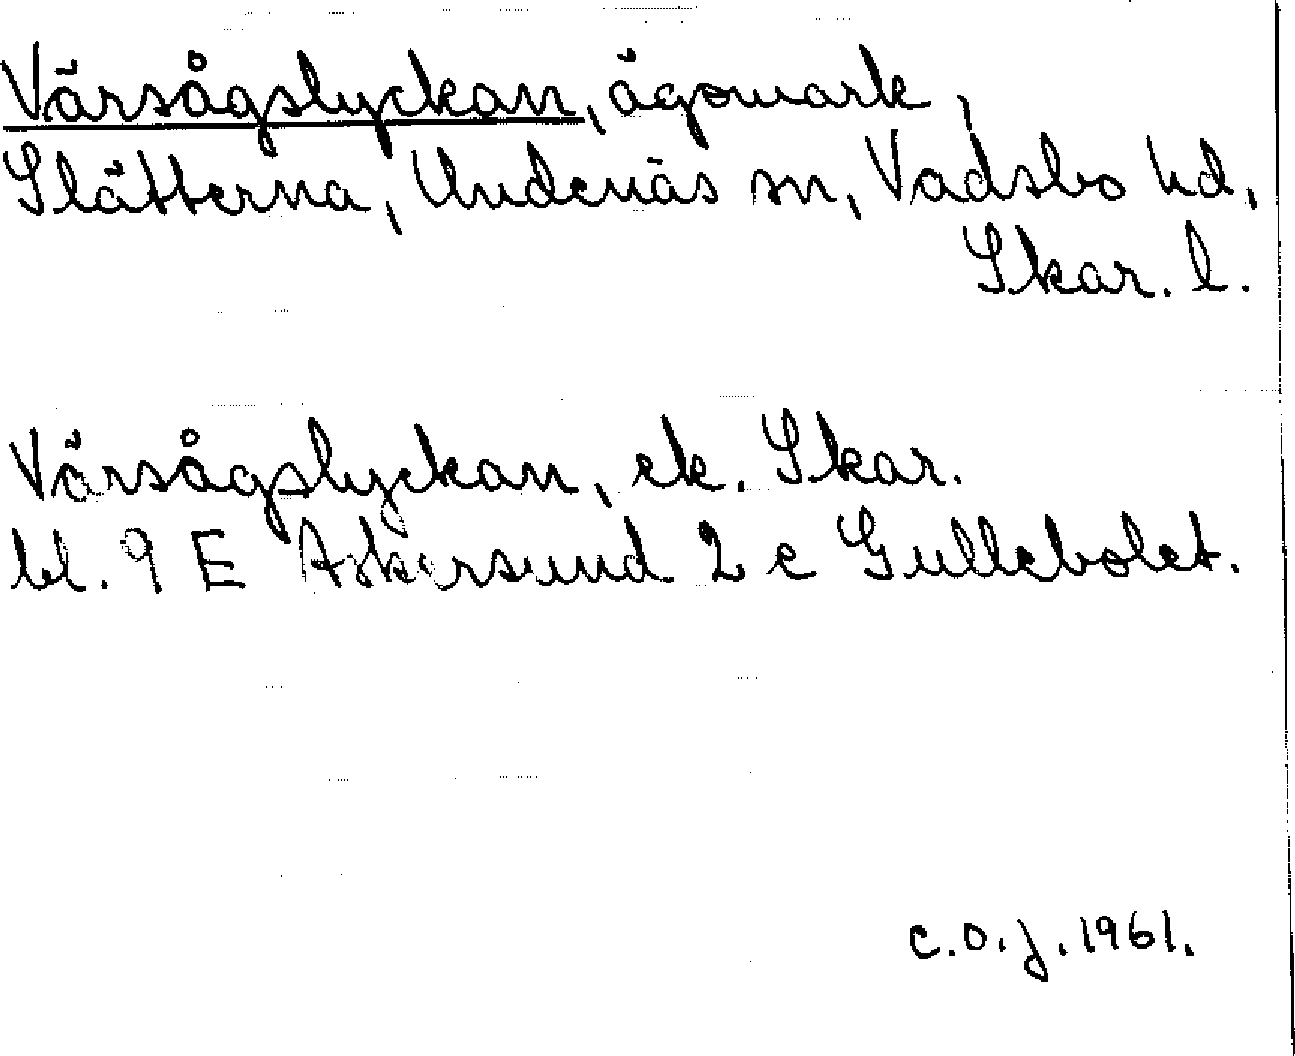 Värsågslyckan, ägomark,
Slätterna, Undenäs sn, Vadsbo hd,
Skar. l.
Värsågslyckan, ek. Skar.
bl. 9 E Askersund 2 e Gullebolet.
c.o.j. 1961.